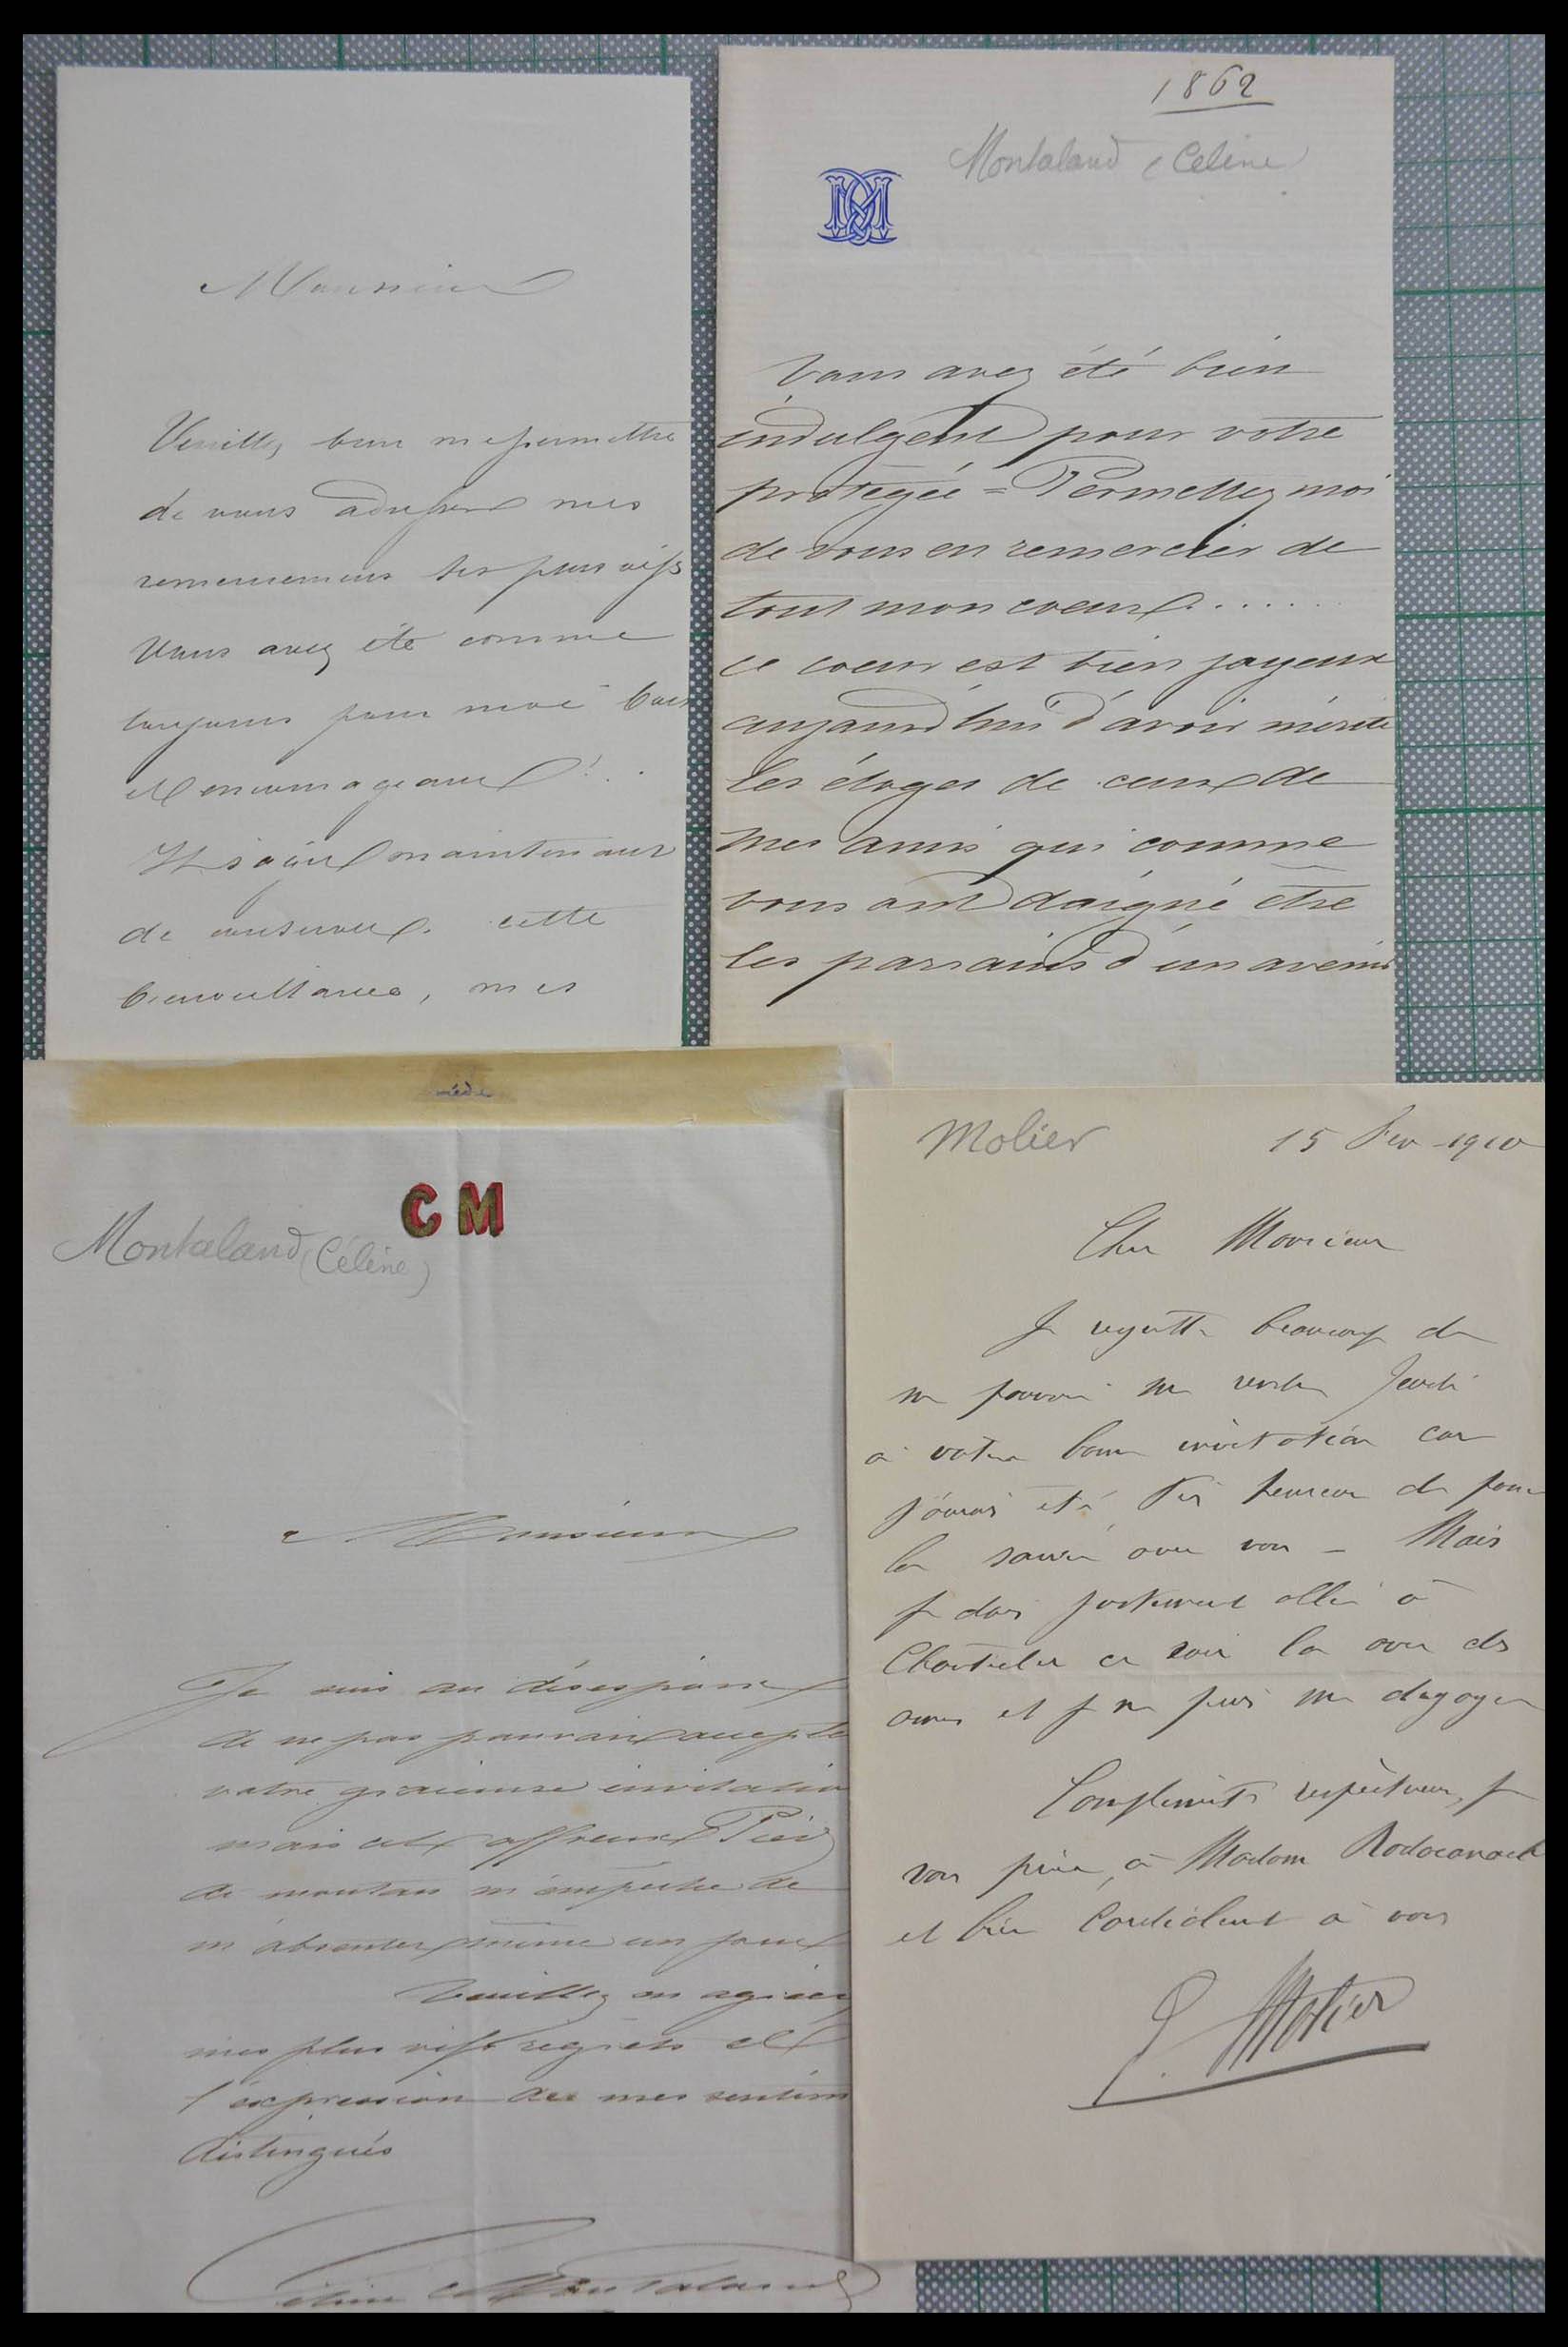 Monsieur
Veuillez bien me permettre
de vous adresser mes
remerciemens les plus vifs
Vous avez été comme
toujours pour moi bon
et encourageant ! . .
maintenant
de conserver cette
bienveillance, mes
1862
Montaland Celine
Vous avez été bien
indulgent pour votre
protégée = Permettez moi
de vous en remercier de
tout mon coeur . . . . . .
ce coeur est bien joyeux
aujourd'hui d'avoir mérité
les éloges de ceux de
mes amis qui comme
vous ont daigné être
les parrains d'un avenir
CM
Montaland (Céline)
Monsieur
Je suis au désespoir
de ne pas pouvoir accepter
votre gracieuse invitation
mais cet affreux Pied
de mouton m'empêche de
m'absenter même un jour
Veuillez en agréer
mes plus vifs regrets et
l'expression de mes sentim
distingués
Céline Montaland
Molier
15 Fev - 1910
Cher Monsieur
Je regrette beaucoup de
ne pouvoir me rendre Jeudi
à votre bonne invitation car
j'aurais été très heureux de passer
la soirée avec vous - Mais
je dois justement aller à
Chantecler ce soir là avec des
amis et je ne puis me dégager
Compliments respectueux, je
vous prie, à Madame Rodocanachi
et bien Cordialement à vous
E. Molier